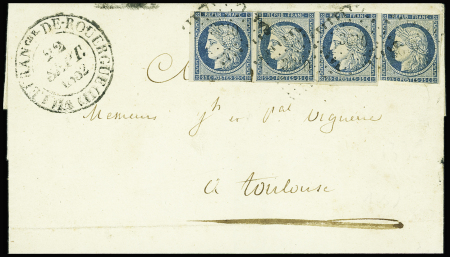 REPUB. FRANC. REPUB. FRANC. REPUB. FRANC. REPUB. FRANC.
25 c POSTES 25 c 25 c POSTES 25 c 25 c POSTES 25 c 25 c POSTES 25 c
VILLEFRANche DE-ROUERGUE (11)
22
SEPT.
1852
Messieurs
Viguerie
a Toulouse